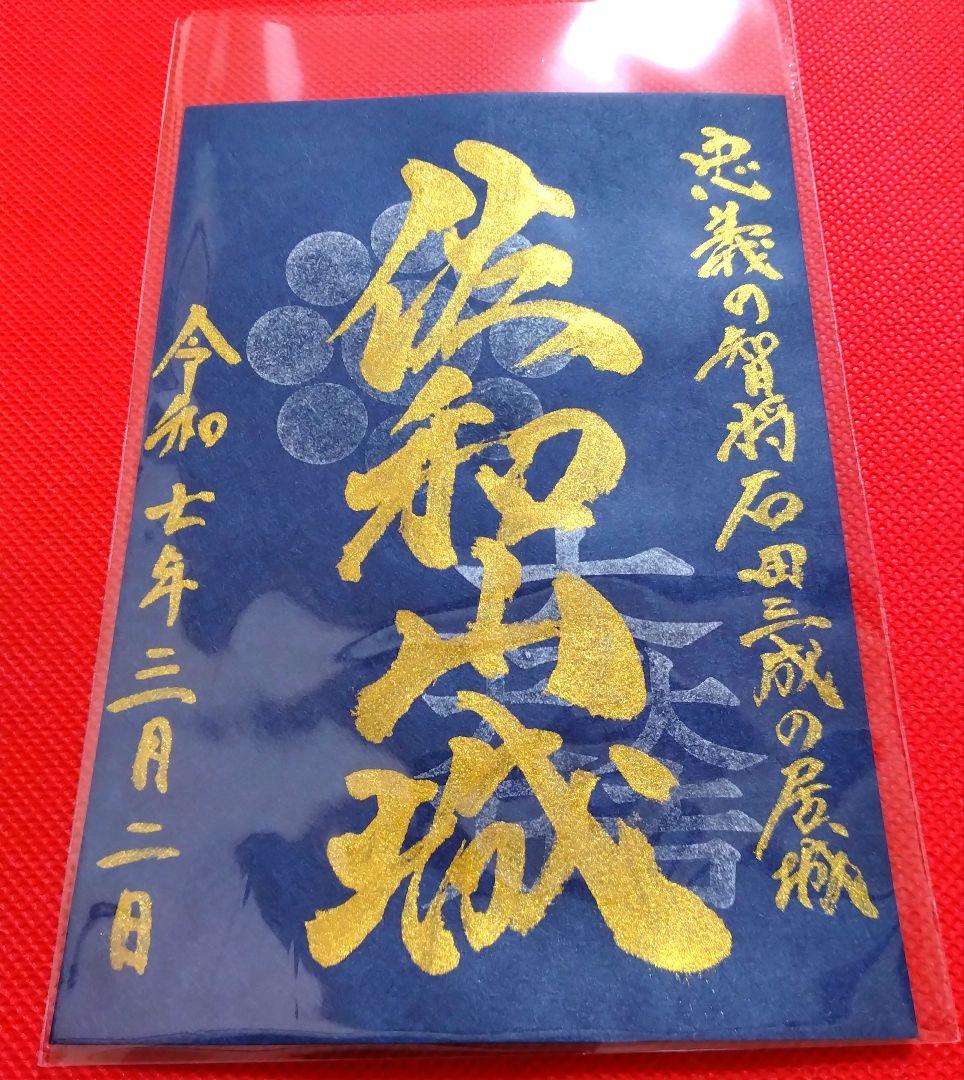 忠義の智将石田三成の居城
佐和山城
大一大万大吉
令和七年三月二日